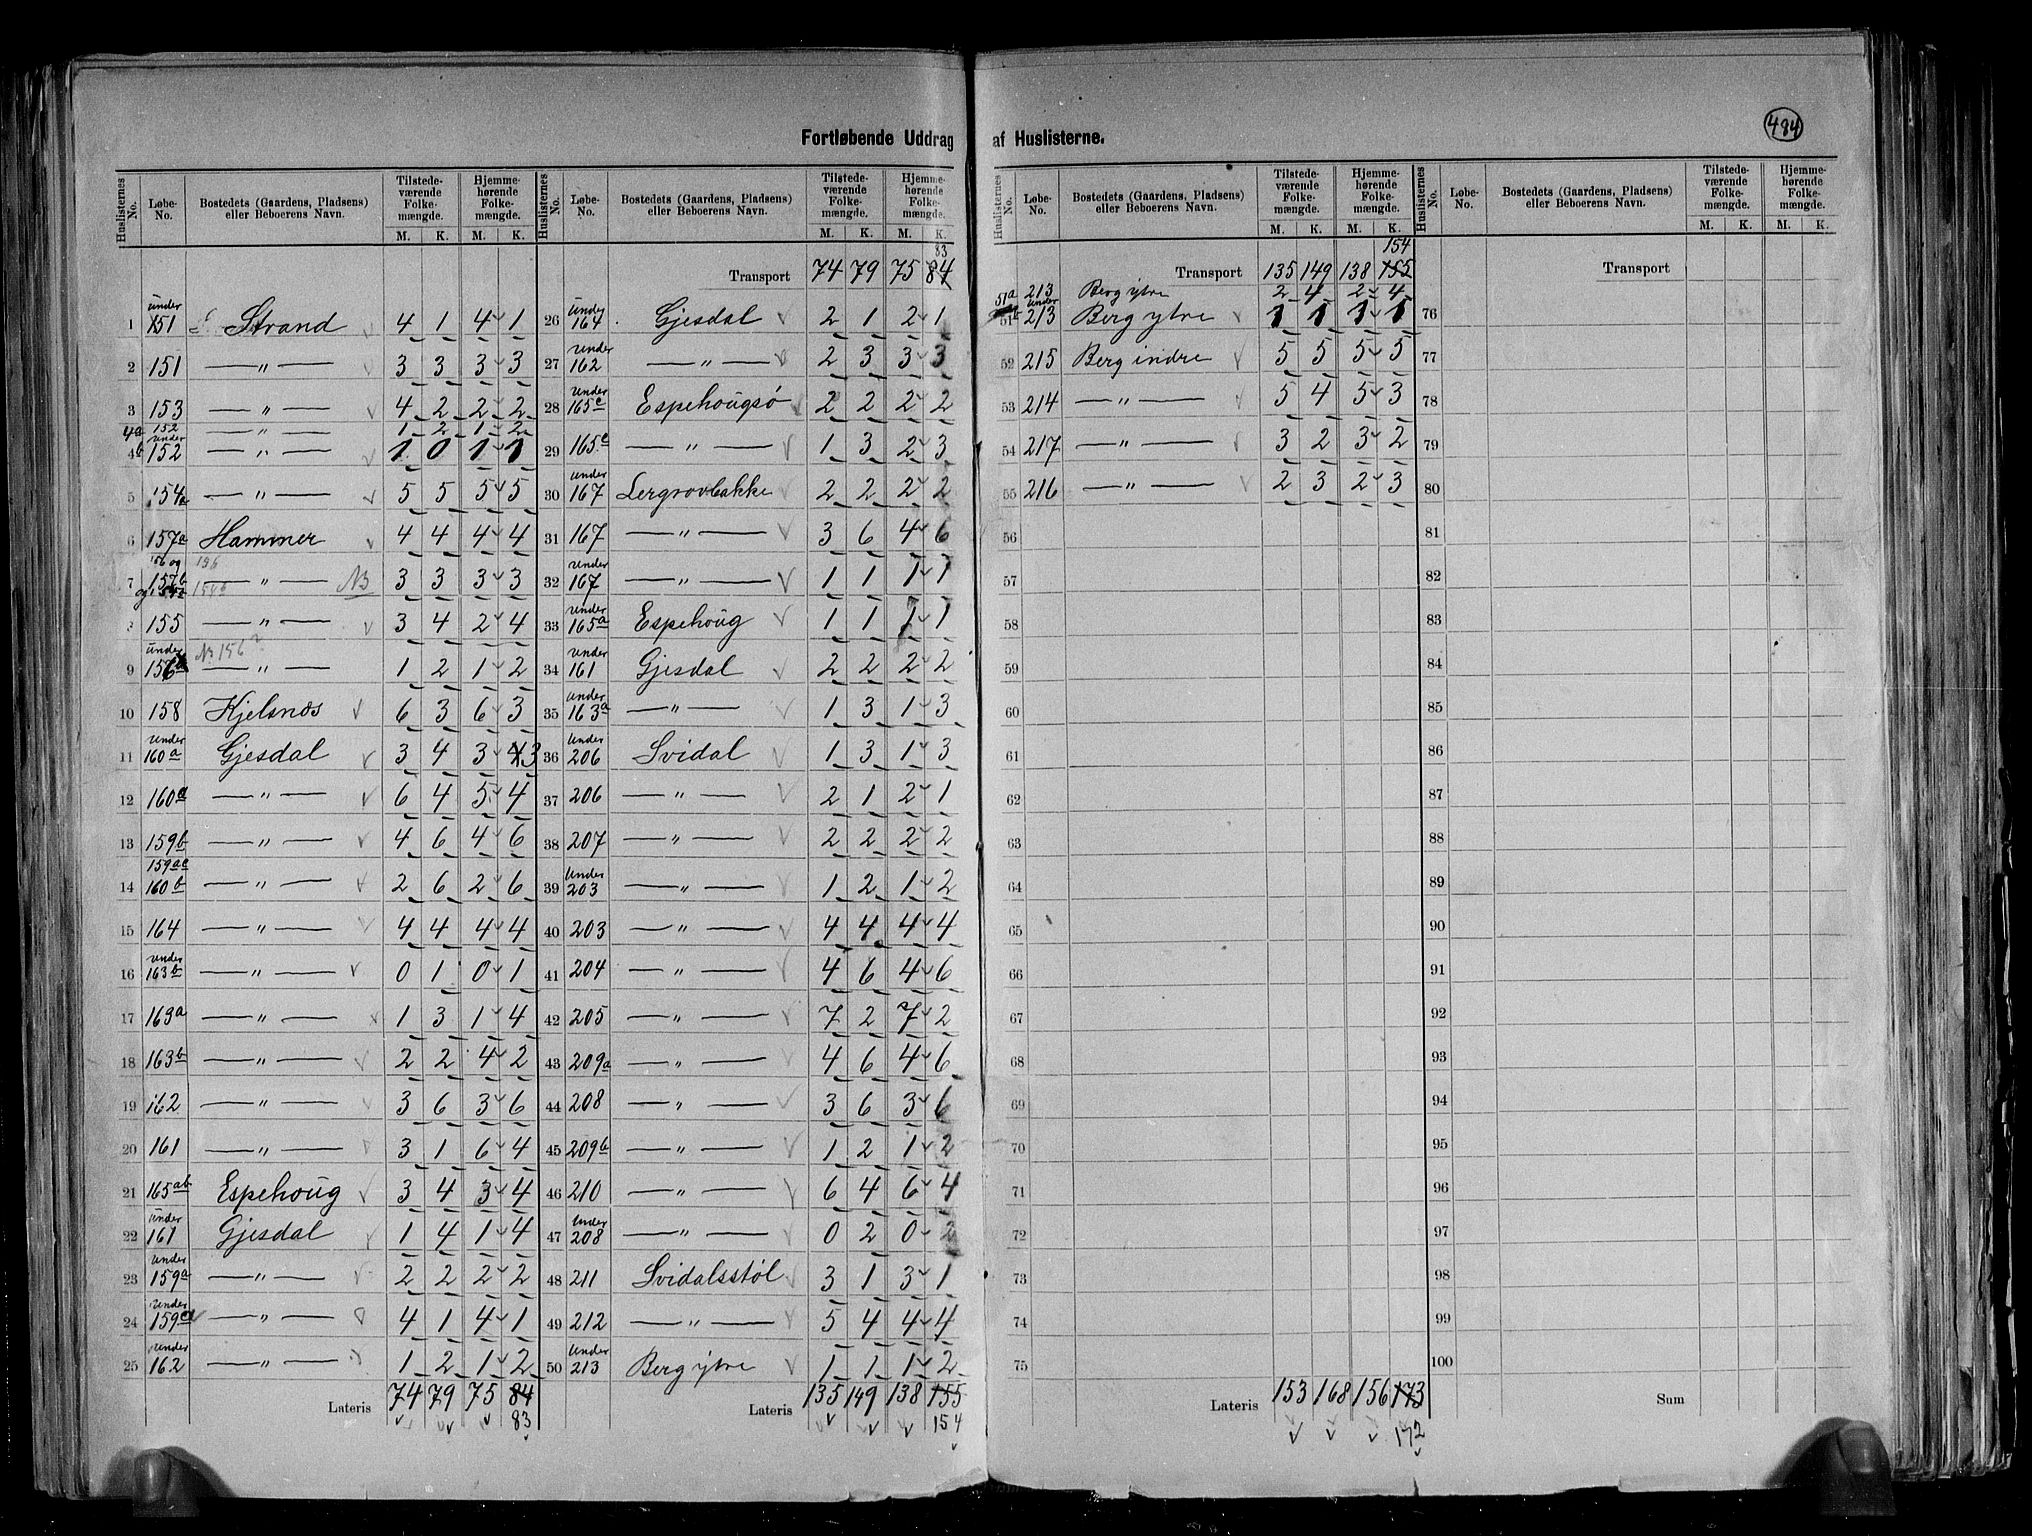 Fortløbende Uddrag af Huslisterne.
484
Huslisternes No. | Løbe-No. | Bostedets (Gaardens, Pladsens) eller Beboerens Navn. | Tilstede-værende Folke-mængde. M. K. | Hjemme-hørende Folke-mængde. M. K.
1 under 151 Strand 4 1 4 1
2 151 — " — 3 3 3 3
3 153 — " — 4 2 2 2
4a 152 — " — 1 2 1 2
4b under 152 — " — 1 0 1 1
5 154a — " — 5 5 5 5
6 157a Hammer 4 4 4 4
7 156 og 157b og 154b 156 154b — " — NB 3 3 3 3
8 155 — " — 3 4 2 4
9 under 156 No 156? — " — 1 2 1 2
10 158 Kjelsnæs 6 3 6 3
11 under 160a Gjesdal 3 4 3 4 3
12 160a — " — 6 4 5 4
13 159b — " — 4 6 4 6
14 159ac 160b — " — 2 6 2 6
15 164 — " — 4 4 4 4
16 under 163b — " — 0 1 0 1
17 163a — " — 1 3 1 4
18 163b — " — 2 2 4 2
19 162 — " — 3 6 3 6
20 161 — " — 3 1 6 4
21 165ab Espehoug 3 4 3 4
22 under 161 Gjesdal 1 4 1 4
23 under 159a — " — 2 2 2 2
24 under 159a — " — 4 1 4 1
25 under 162 — " — 1 2 1 2
Lateris 74 79 75 84
83
Huslisternes No. | Løbe-No. | Bostedets (Gaardens, Pladsens) eller Beboerens Navn. | Tilstede-værende Folke-mængde. M. K. | Hjemme-hørende Folke-mængde. M. K.
83
Transport 74 79 75 84
26 under 164 Gjesdal 2 1 2 1
27 under 162 — " — 2 3 3 3
28 under 165c Espehougsø 2 2 2 2
29 165c — " — 1 3 2 3
30 under 167 Lergrovbakke 2 2 2 2
31 167 — " — 3 6 4 6
32 under 167 — " — 1 1 1 1
33 under 165a Espehoug 1 1 1 1
34 under 161 Gjesdal 2 2 2 2
35 under 163a — " — 1 3 1 3
36 under 206 Svidal 1 3 1 3
37 206 — " — 2 1 2 1
38 207 — " — 2 2 2 2
39 under 203 — " — 1 2 1 2
40 203 — " — 4 4 4 4
41 204 — " — 4 6 4 6
42 205 — " — 7 2 7 2
43 209a — " — 4 6 4 6
44 208 — " — 3 6 3 6
45 209b — " — 1 2 1 2
46 210 — " — 6 4 6 4
47 under 208 — " — 0 2 0 2
48 211 Svidalsstøl 3 1 3 1
49 212 — " — 5 4 4 4
50 under 213 Berg ytre 1 1 1 2
Lateris 135 149 138 155
154
Huslisternes No. | Løbe-No. | Bostedets (Gaardens, Pladsens) eller Beboerens Navn. | Tilstede-værende Folke-mængde. M. K. | Hjemme-hørende Folke-mængde. M. K.
154
Transport 135 149 138 155
51a 213 Berg ytre 2 4 2 4
51b under 213 Berg ytre 1 1 1 1
52 215 Berg indre 5 5 5 5
53 214 — " — 5 4 5 3
54 217 — " — 3 2 3 2
55 216 — " — 2 3 2 3
56
57
58
59
60
61
62
63
64
65
66
67
68
69
70
71
72
73
74
75
Lateris 153 168 156 173
172
Huslisternes No. | Løbe-No. | Bostedets (Gaardens, Pladsens) eller Beboerens Navn. | Tilstede-værende Folke-mængde. M. K. | Hjemme-hørende Folke-mængde. M. K.
Transport
76
77
78
79
80
81
82
83
84
85
86
87
88
89
90
91
92
93
94
95
96
97
98
99
100
Sum